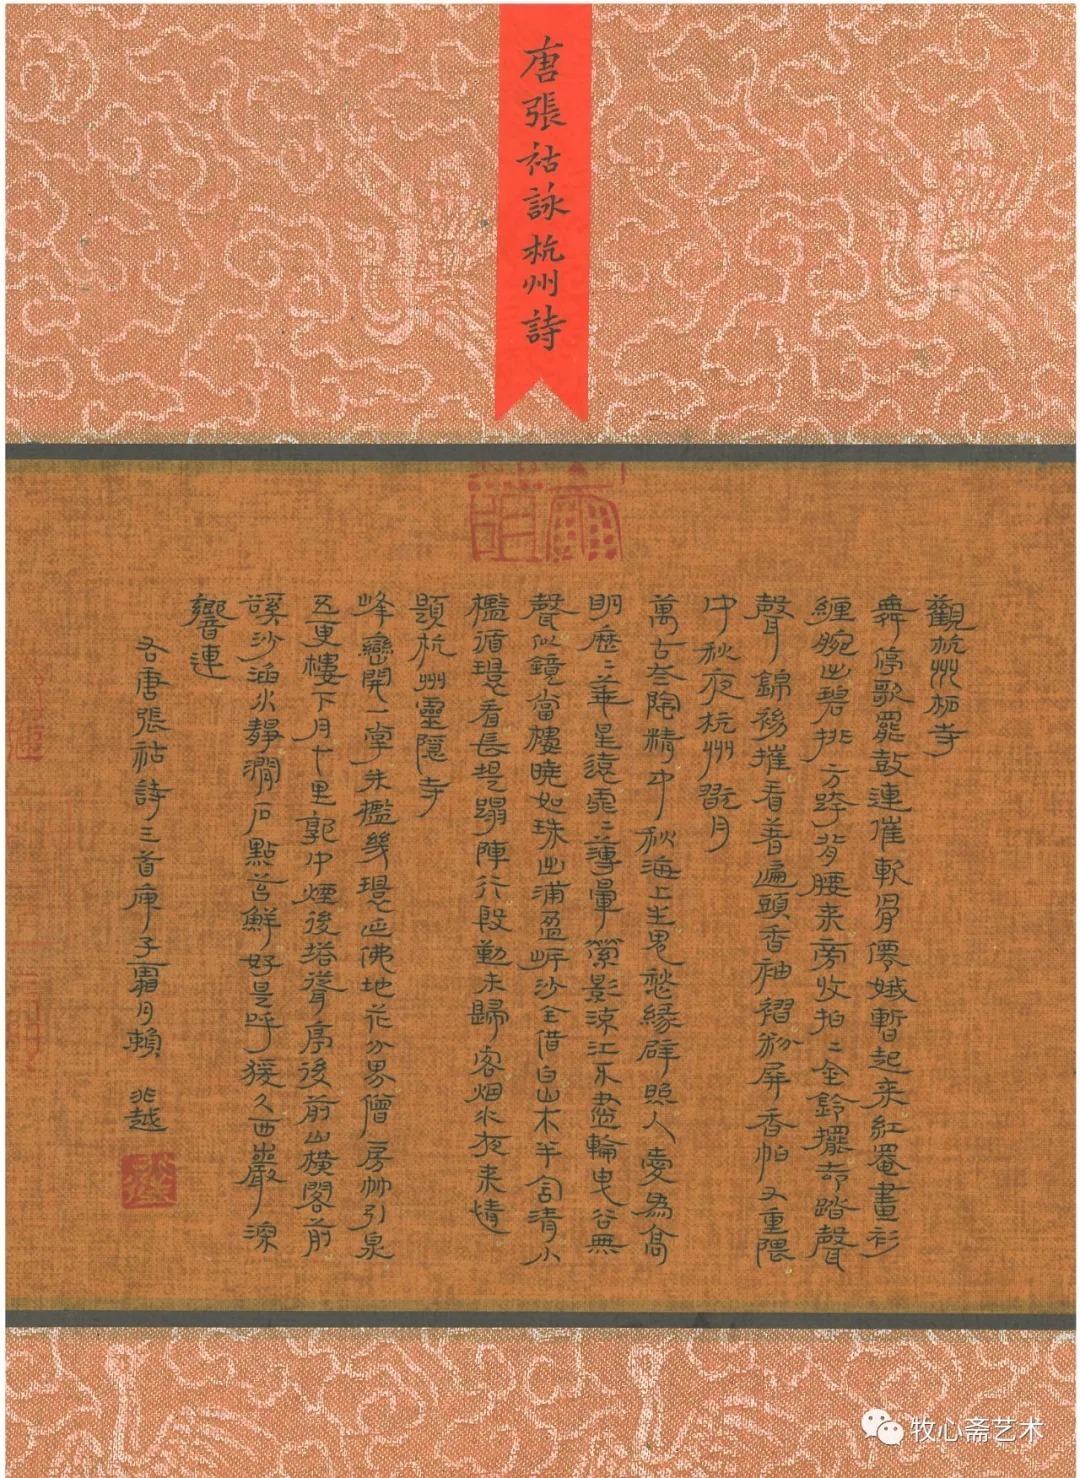 唐張祜詠杭州詩
觀杭州柘寺
舞停歌罷鼓連催軟骨僊娥暫起來紅罨畫衫
纏腕出碧排方跨背腰來旁收拍〻金鈴擺却踏聲
聲錦袎摧看著遍頭香袖褶粉屏香帕又重隈
中秋夜杭州翫月
萬古太陰精中秋海上生鬼愁緣辟照人愛為高
明歷〻華星遠霏〻薄暈縈影流江不盡輪曳谷無
聲似鏡當樓曉如珠出浦盈岍沙全借白山木半含清小
檻循環看長堤蹋陣行殷勤未歸客烟水夜來情
題杭州靈隱寺
峰巒開一掌朱檻幾環延佛地花分界僧房竹引泉
五更樓下月十里郭中煙後塔聳亭後前山橫閣前
溪沙涵水靜澗石點苔鮮好是呼猨久西巖深
響連
右唐張祜詩三首庚子霜月賴 非越
牧心斋艺术